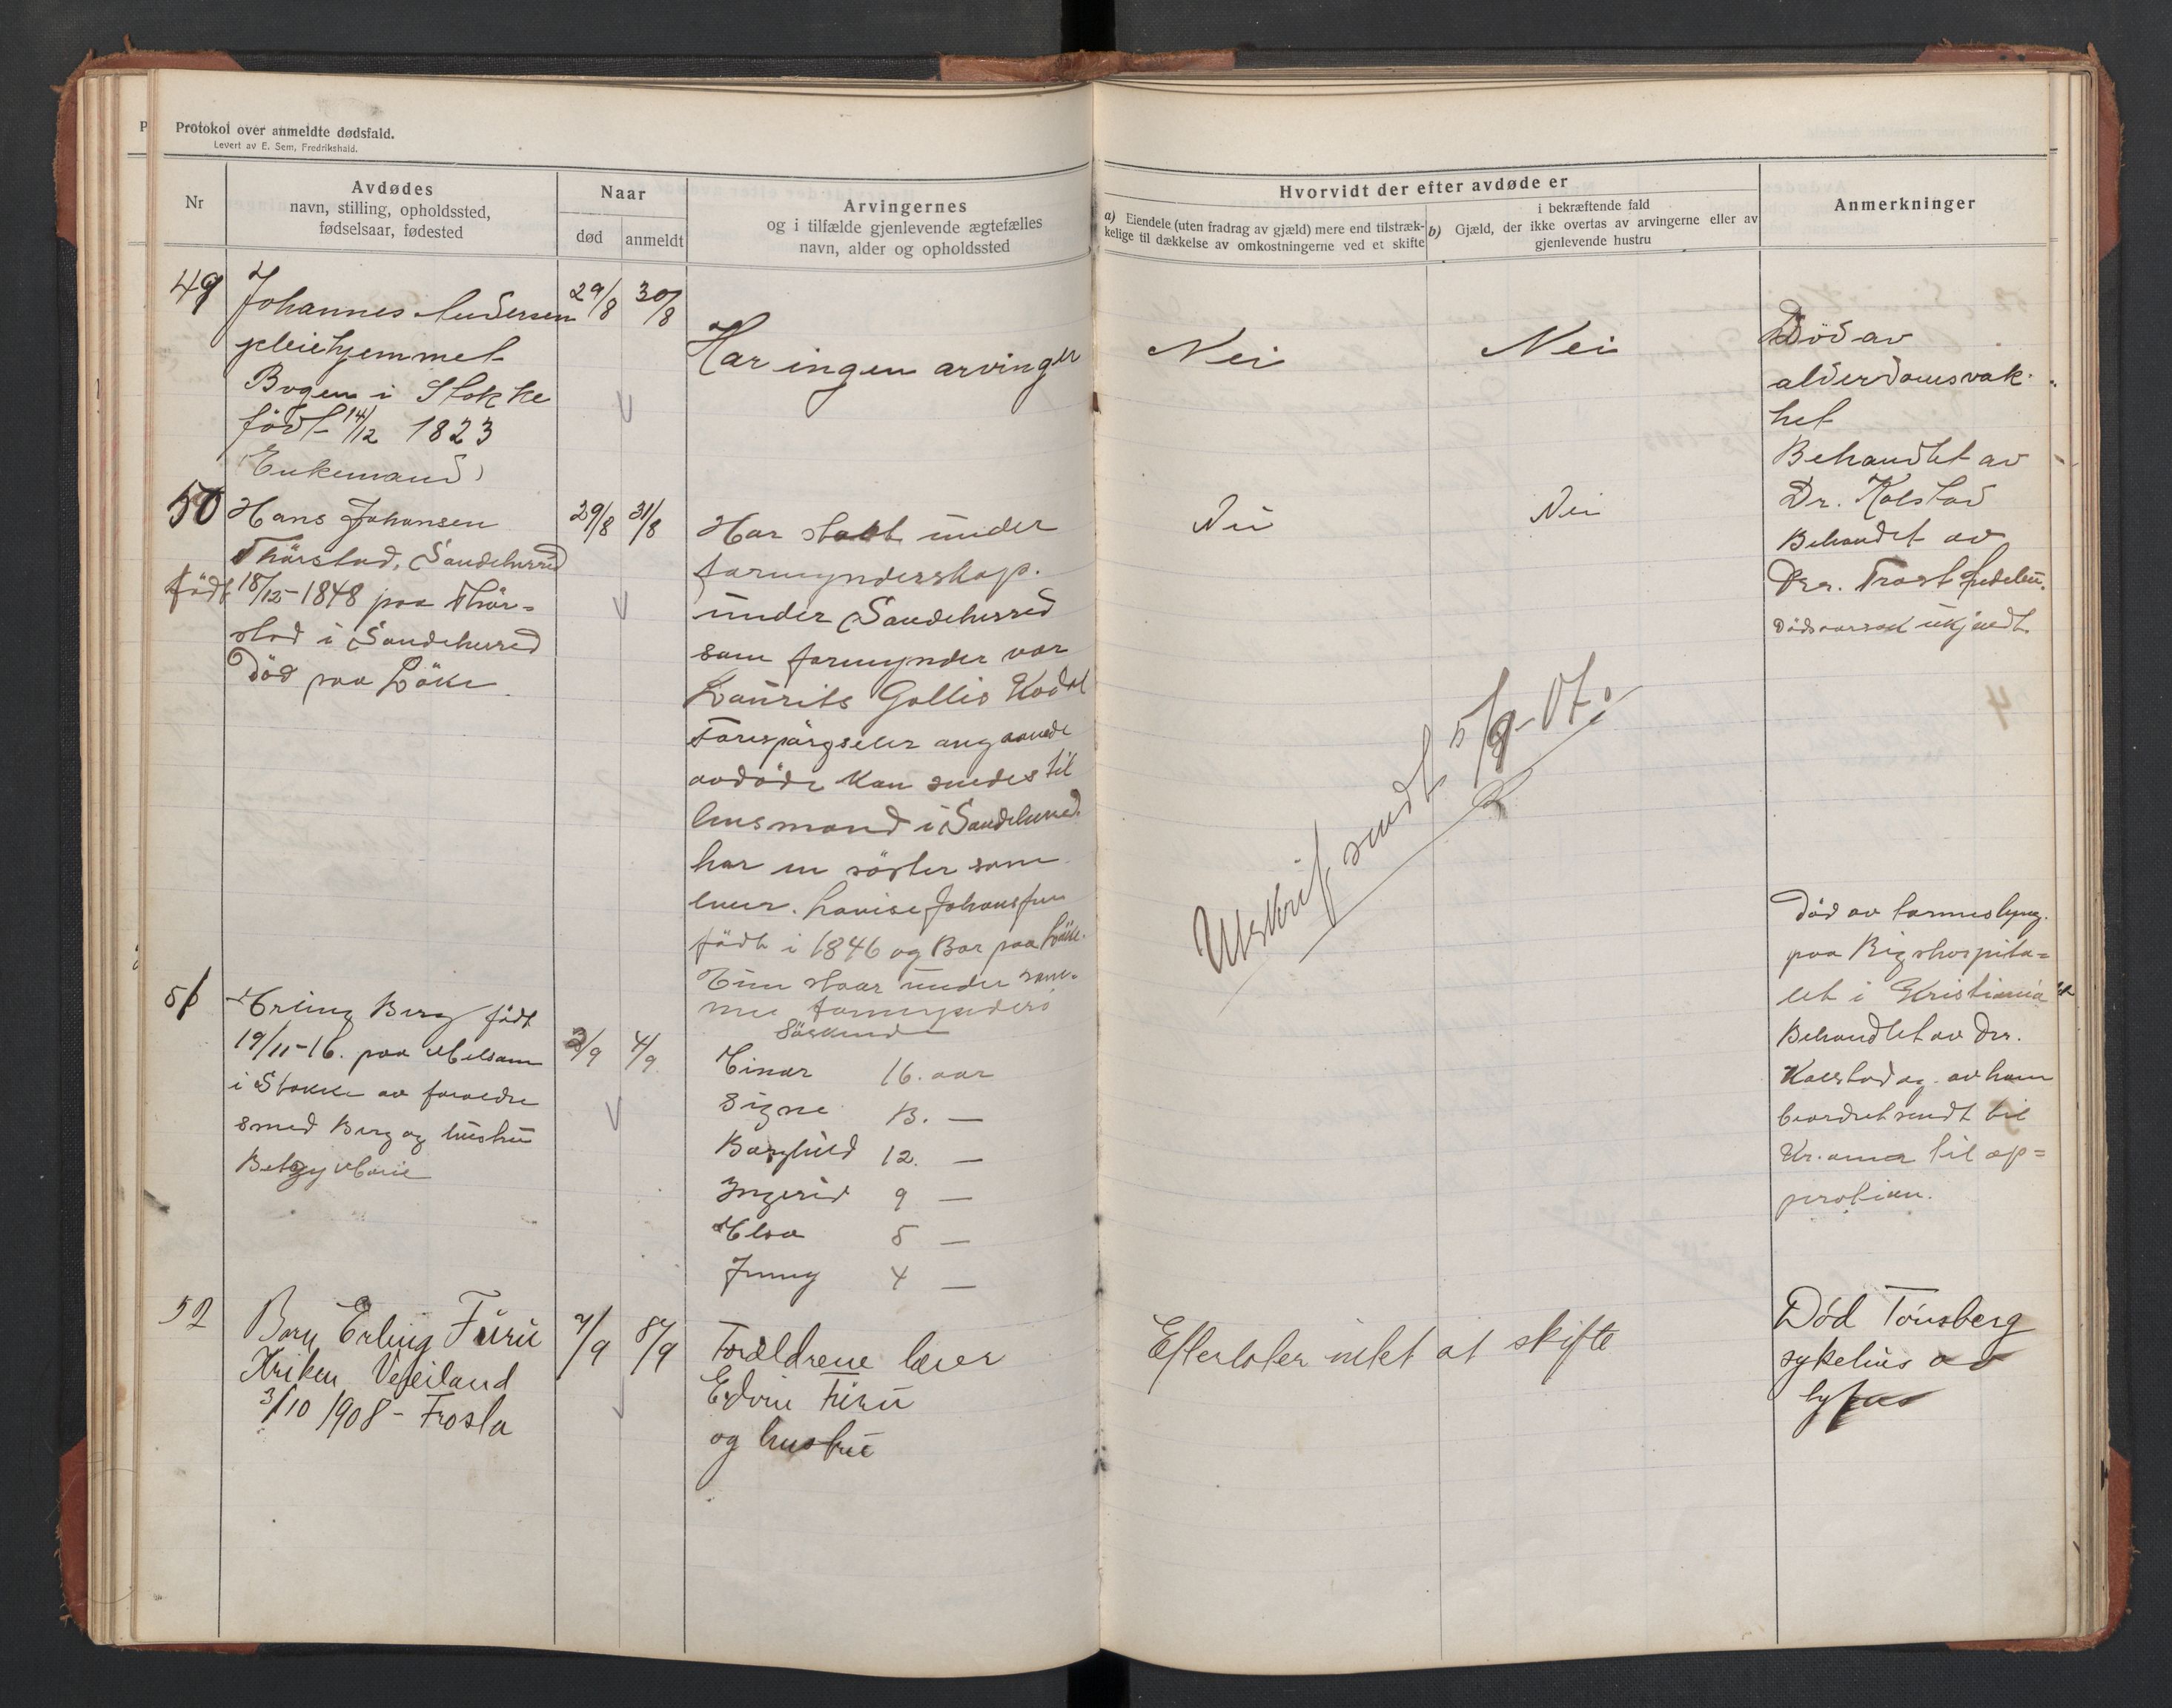 Protokol over anmeldte dødsfald.
Levert av E. Sem, Fredrikshald.
Nr
Avdødes
navn, stilling, opholdssted,
fødselsaar, fødested
Naar
død
anmeldt
Arvingernes
og i tilfælde gjenlevende ægtefælles
navn, alder og opholdssted
Hvorvidt der efter avdøde er
a) Eiendele (uten fradrag av gjæld) mere end tilstræk-
kelige til dækkelse av omkostningerne ved et skifte
i bekræftende fald
b) Gjæld, der ikke overtas av arvingerne eller av
gjenlevende hustru
Anmerkninger
49
Johannes Andersen
pleiehjemmet
Bogen i Stokke
født 14/12 1823
Enkemand
29/8 30/8
Har ingen arvinger
Nei
Nei
Död av
alderdomsvak-
het
Behandlet av
Dr. Kolstad
50
Hans Johansen
Thorstad, Sandeherred
født 18/12-1848 paa Thor-
stad i Sandeherred
Död paa Löke
29/8 31/8
Har staat under
formynderskap.
under Sandeherred
som formynder var
Laurits Gallis Kodal
Forespørgseler angaaende
avdøde kan sendes til
lensmand i Sandeherred
har en søster som
lever. Lovise Johansen
född i 1846 og Bor paa Löke.
Hun staar under sam-
me formynders
Nei
Nei
Behandlet av
Drr. Trost
Dödsaarsak ukjendt.
Utskrift sendt 5/9-07.
51
Erling Berg født
19/11-16. paa Melsom
i Stokke av foreldre
smed Berg og hustru
Betzy Marie
3/9 4/9
Söskende
Einar 16. aar
Signe 13. —
Borghild 12. —
Ingerid 9 —
Elsa 5 —
Jenny 4 —
Död av tarmslyng.
paa Rigshospita=
let i Kristiania
Behandlet av Drr.
Kolstad og av ham
beordret sendt til
Kr.ania til op=
protion.
52
Barn Erling Furu
Kriken Veieland
3/10 1908 - Frosta
7/9 8/9
Forældrene lever
Edvin Furu
og hustru
Efterlater intet at skifte
Död Tönsberg
sykehus av
tyfus